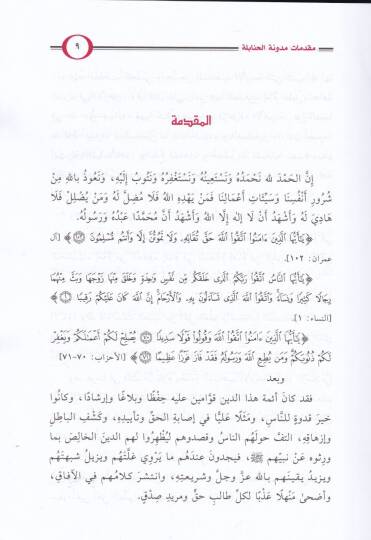 مقدمات مدونة الحنابلة
٩
المقدمة
إِنَّ الحَمْدَ لله نَحْمَدُهُ وَنَسْتَعِينُهُ وَنَسْتَغْفِرُهُ وَنَتُوبُ إِلَيْهِ، وَنَعُوذُ باللهِ مِنْ
شُرُورِ أَنْفُسِنَا وَسَيِّئَاتِ أَعْمَالِنَا فَمَنْ يَهْدِهِ اللهُ فَلَا مُضِلَّ لَهُ وَمَنْ يُضْلِلْ فَلَا
هَادِيَ لَهُ وَأَشْهَدُ أَنْ لَا إِلَهَ إِلَّا اللهُ وَأَشْهَدُ أَنَّ مُحَمَّدًا عَبْدُهُ وَرَسُولُهُ.
﴿يَٰٓأَيُّهَا ٱلَّذِينَ ءَامَنُوا۟ ٱتَّقُوا۟ ٱللَّهَ حَقَّ تُقَاتِهِۦ وَلَا تَمُوتُنَّ إِلَّا وَأَنتُم مُّسْلِمُونَ ١٠٢﴾ [آل
عمران: ١٠٢].
﴿يَٰٓأَيُّهَا ٱلنَّاسُ ٱتَّقُوا۟ رَبَّكُمُ ٱلَّذِى خَلَقَكُم مِّن نَّفْسٍ وَٰحِدَةٍ وَخَلَقَ مِنْهَا زَوْجَهَا وَبَثَّ مِنْهُمَا
رِجَالًا كَثِيرًا وَنِسَآءً وَٱتَّقُوا۟ ٱللَّهَ ٱلَّذِى تَسَآءَلُونَ بِهِۦ وَٱلْأَرْحَامَ إِنَّ ٱللَّهَ كَانَ عَلَيْكُمْ رَقِيبًا ١﴾
[النساء: ١].
﴿يَٰٓأَيُّهَا ٱلَّذِينَ ءَامَنُوا۟ ٱتَّقُوا۟ ٱللَّهَ وَقُولُوا۟ قَوْلًا سَدِيدًا ٧٠ يُصْلِحْ لَكُمْ أَعْمَٰلَكُمْ وَيَغْفِرْ
لَكُمْ ذُنُوبَكُمْ وَمَن يُطِعِ ٱللَّهَ وَرَسُولَهُۥ فَقَدْ فَازَ فَوْزًا عَظِيمًا ٧١﴾ [الأحزاب: ٧٠-٧١]
وبعد
فقد كانَ أئمة هذا الدين قوَّامين عليه حِفْظًا وبلاغًا وإرشادًا، وكانُوا
خيرَ قدوةٍ للنَّاسِ، ومَثَلًا عَليًّا في إصابةِ الحقِّ وتأييدِهِ، وكَشْفِ الباطِلِ
وإزهاقِهِ، التفَّ حولَهُم الناسُ وقصدوهم ليُظْهِرُوا لهم الدينَ الخالِصَ بما
ورثوه عَنْ نبيِّهم ﷺ، فيجدون عندَهُم ما يَرْوِي غلَّتَهُم ويزيلُ شبهتَهُم
ويزيدُ يقينَهم بالله عزَّ وجلَّ وشريعتِهِ، وانتشرَ كلامُهم في الآفاقِ،
وأضحىٰ مَنْهَلًا عَذْبًا لكلِّ طالبِ حقٍّ ومريدِ صِدْقٍ.